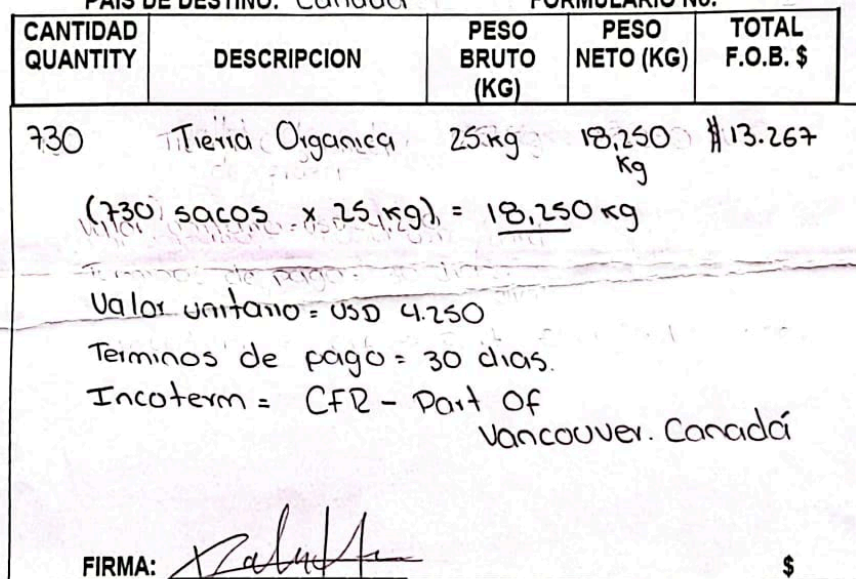 PAIS DE DESTINO: Canada FORMULARIO No.
CANTIDAD QUANTITY DESCRIPCION PESO BRUTO (KG) PESO NETO (KG) TOTAL F.O.B. $
730 Tierra Organica 25 kg 18,250 kg $13.267
(730 sacos x 25 kg) = 18,250 kg
Valor unitario = USD 4.250
Terminos de pago = 30 dias.
Incoterm = CFR - Port Of
Vancouver. Canadá
FIRMA: $